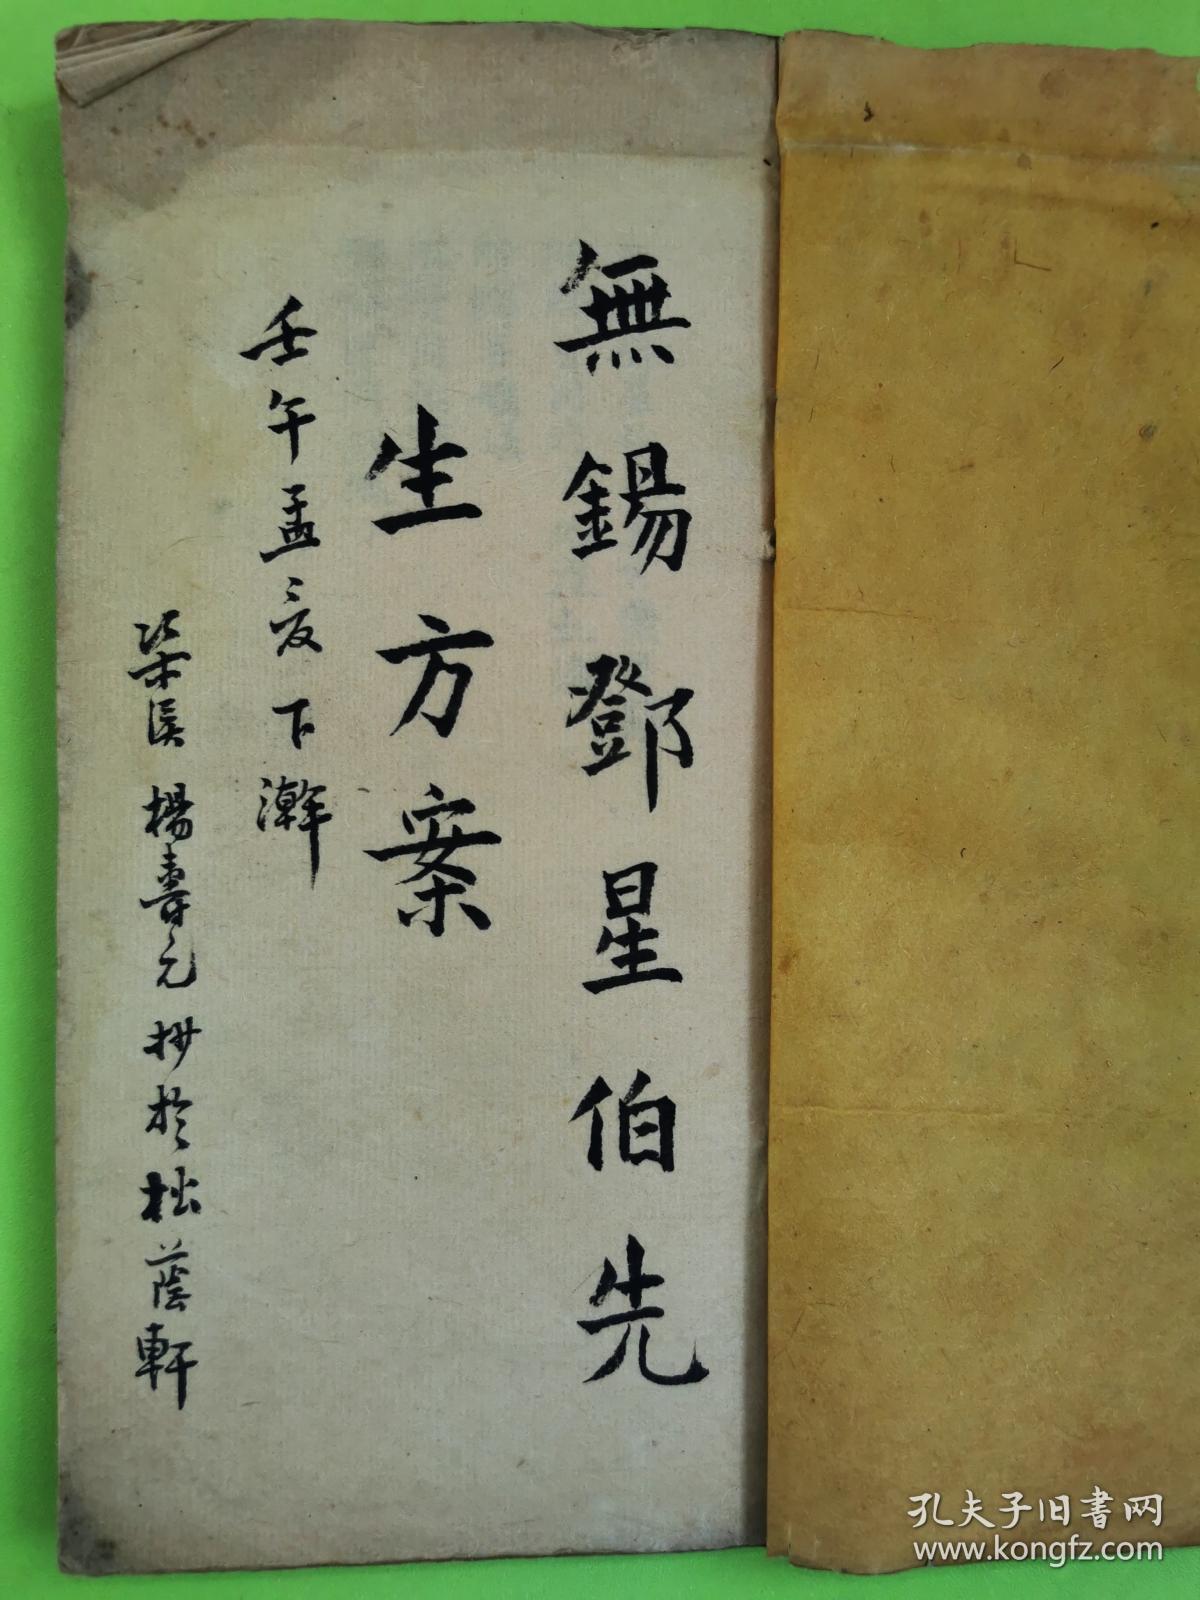 無錫鄧星伯先
生方案
壬午孟夏下澣
梁溪 楊壽元 抄於松蔭軒
孔夫子旧書网
www.kongfz.com